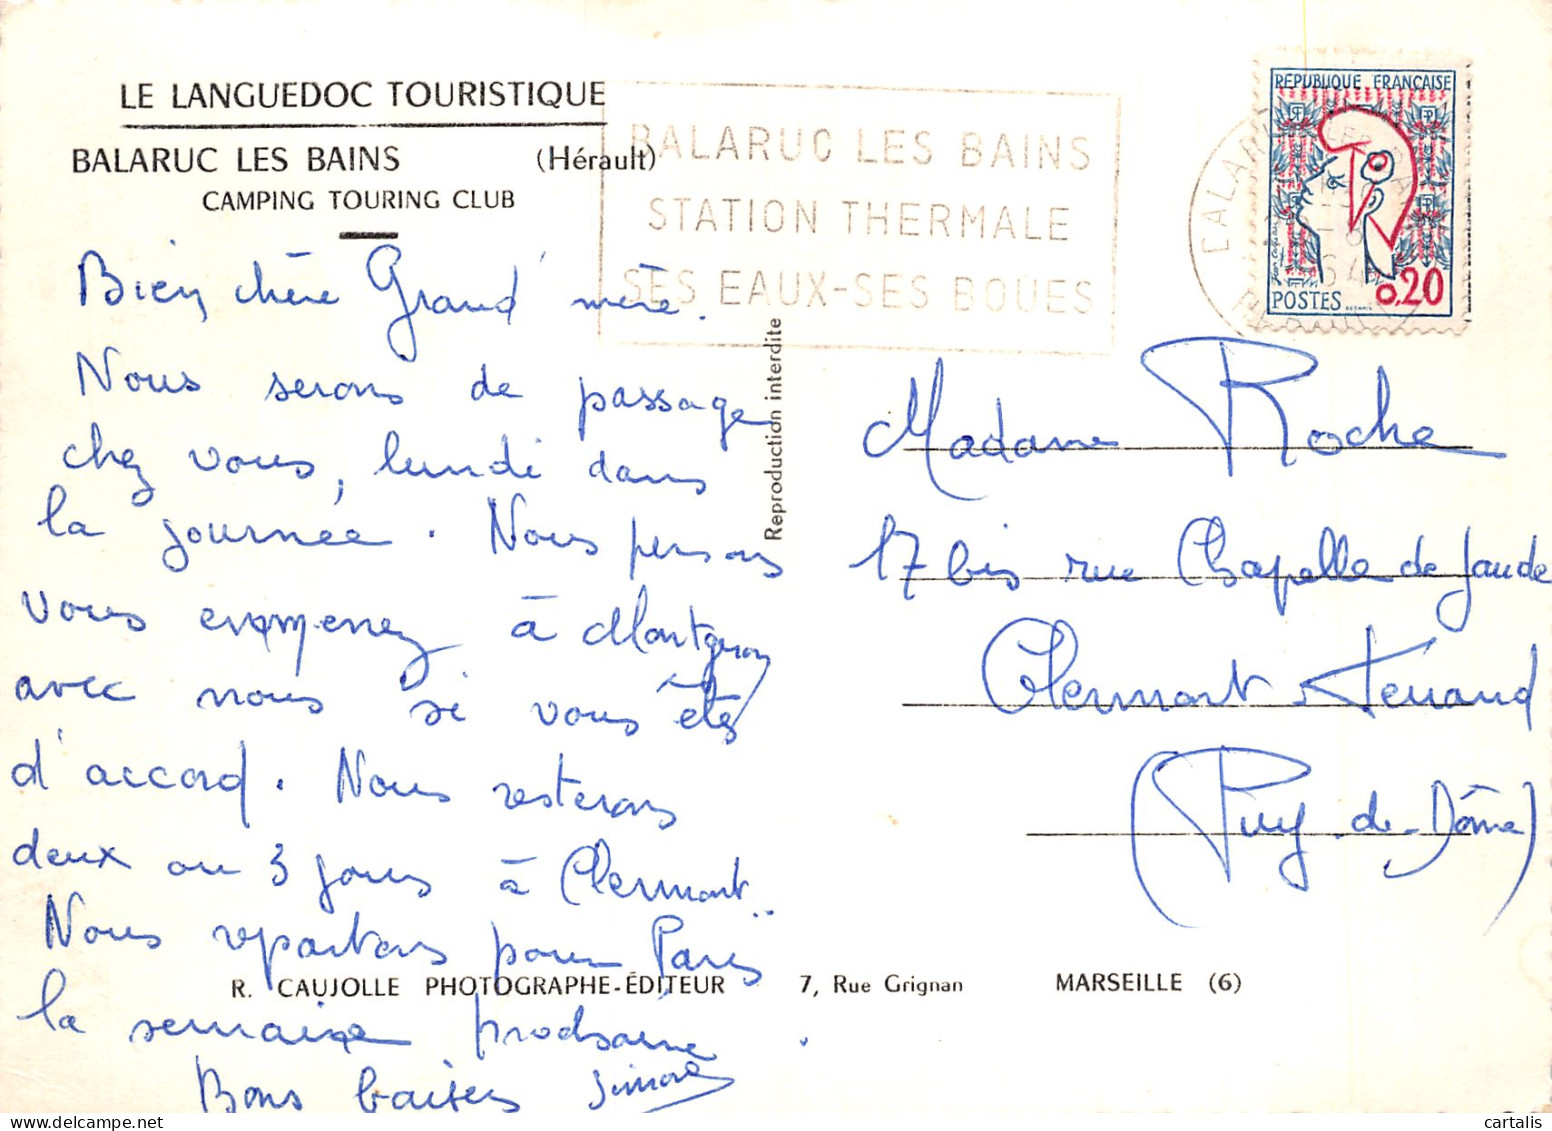 LE LANGUEDOC TOURISTIQUE
BALARUC LES BAINS (Hérault)
CAMPING TOURING CLUB
BALARUC LES BAINS
STATION THERMALE
SES EAUX-SES BOUES
REPUBLIQUE FRANÇAISE
POSTES 0,20
Bien chère Grand'mère.
Nous serons de passage
chez vous, lundi dans
la journée. Nous pensons
vous emmenez à Montgeron
avec nous si vous êtes
d'accord. Nous resterons
deux ou 3 jours à Clermont.
Nous repartons pour Paris
la semaine prochaine.
Bons baisers Simone
Reproduction interdite
Madame Roche
17 bis rue Chapelle de Jaude
Clermont Ferrand
(Puy-de-Dôme)
R. CAUJOLLE PHOTOGRAPHE-ÉDITEUR 7, Rue Grignan MARSEILLE (6)
cartalis